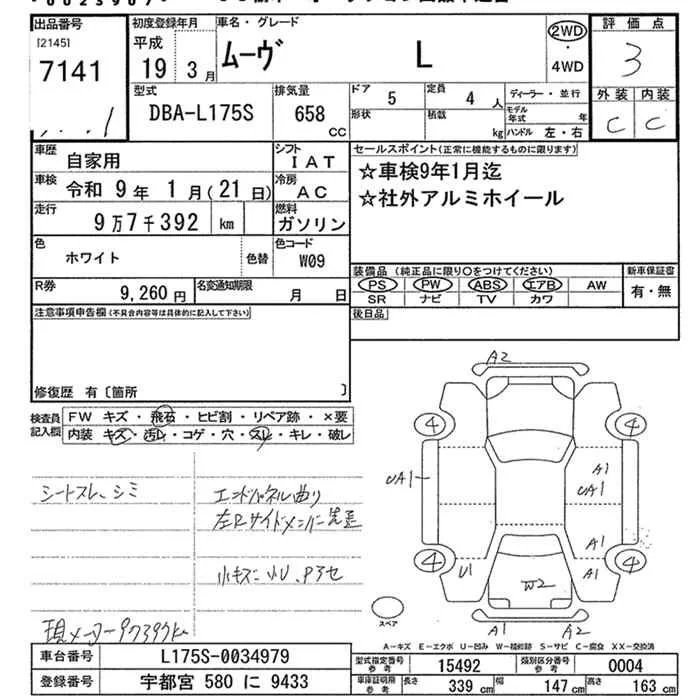 出品番号 初度登録年月 車名・グレード 評価点
[2145]
7141
平成
19 3月 ムーヴ L
2WD
・
4WD
3
外装 内装
C C
型式 排気量 ドア 5 定員 4人 ディーラー・並行
DBA-L175S 658 CC
形状 積載 kg モデル年式 年
ハンドル 左・右
車歴 自家用 シフト IAT
セールスポイント(正常に機能するものに限ります)
☆車検9年1月迄
☆社外アルミホイール
車検 令和 9年 1月(21日) 冷房 AC
走行 9万7千392 km 燃料 ガソリン
色 ホワイト 色替 色コード W09
装備品(純正品に限り○をつけてください) 新車保証書
PS PW ABS エアB AW 有・無
SR ナビ TV カワ
R券 9,260円 名変通知期限 月 日
後日品
注意事項申告欄(不具合内容等は具体的に記入して下さい)
修復歴 有〔箇所 〕
検査員記入欄
FW キズ・飛石・ヒビ割・リペア跡・×要
内装 キズ・汚レ・コゲ・穴・スレ・キレ・破レ
シートスレ、シミ エンドパネル曲り
左Rサイドメンバー
小キズ 小U、P
現メーター97397km
A2
4 4
UA1 A1
UA1
A1
4 4
U1 A1
W2
A1 A2
スペア
A−キズ E−エクボ U−凹み W−補修跡 S−サビ C−腐食 XX−交換済
車台番号 L175S-0034979
型式指定番号 参考 15492 類別区分番号 参考 0004
登録番号 宇都宮 580 に 9433
車庫証明用 参考 長さ 339 cm 幅 147 cm 高さ 163 cm